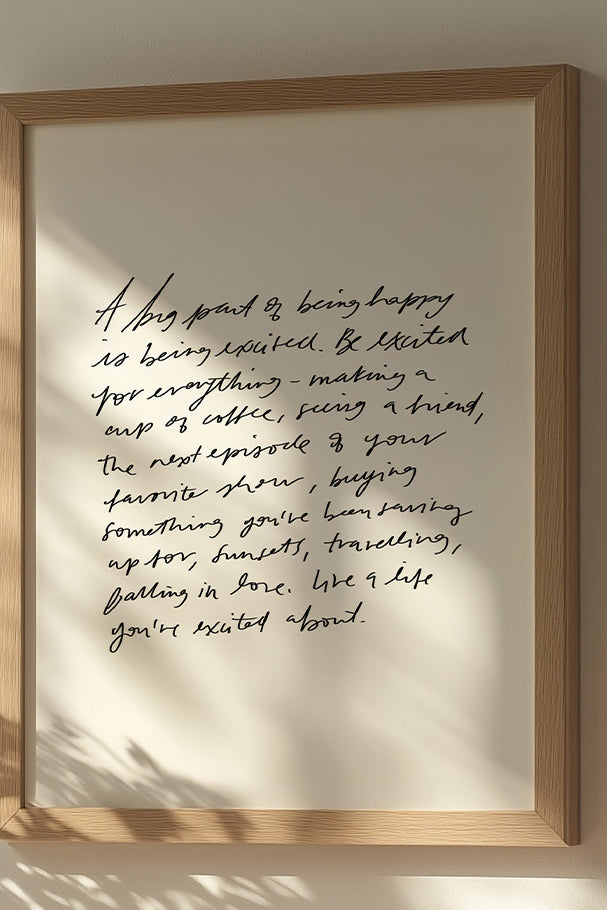 A big part of being happy
is being excited. Be excited
for everything - making a
cup of coffee, seeing a friend,
the next episode of your
favorite show, buying
something you've been saving
up for, sunsets, travelling,
falling in love. Live a life
you're excited about.